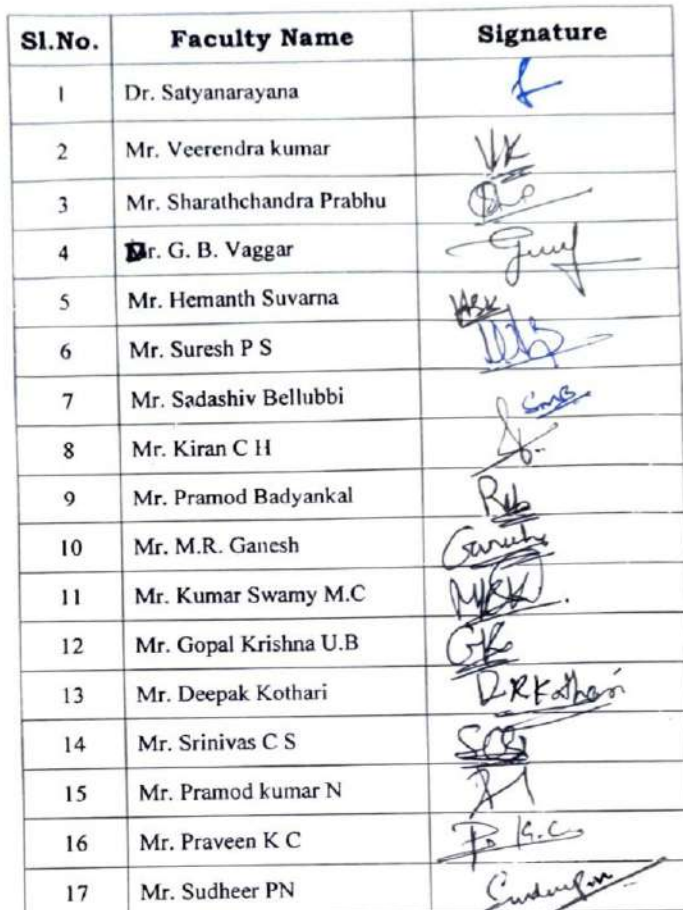 Sl.No. Faculty Name Signature
1 Dr. Satyanarayana
2 Mr. Veerendra kumar VK
3 Mr. Sharathchandra Prabhu
4 Dr. G. B. Vaggar
5 Mr. Hemanth Suvarna
6 Mr. Suresh P S
7 Mr. Sadashiv Bellubbi SMB
8 Mr. Kiran C H
9 Mr. Pramod Badyankal
10 Mr. M.R. Ganesh Ganesh
11 Mr. Kumar Swamy M.C
12 Mr. Gopal Krishna U.B GK
13 Mr. Deepak Kothari D R Kothari
14 Mr. Srinivas C S SCS
15 Mr. Pramod kumar N
16 Mr. Praveen K C P. K.C.
17 Mr. Sudheer PN